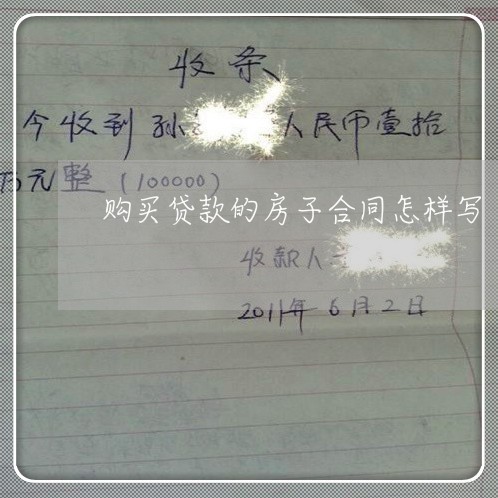 收条
今收到孙 人民币壹拾
万元整（100000）
购买贷款的房子合同怎样写
收款人
2011年6月2日